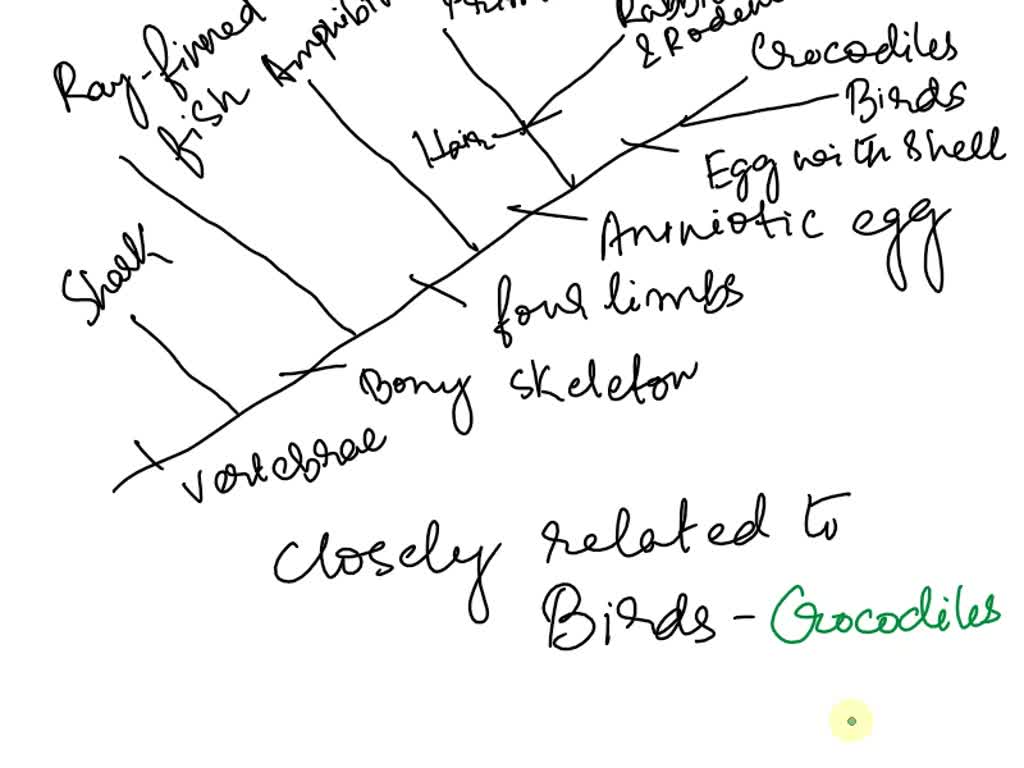 Ray-finned
fish
Amphibi
Rabbi
& Rodent
Crocodiles
Birds
Hair
Egg with shell
Amniotic egg
Shark
four limbs
Bony skeleton
vertebrae
Closely related to
Birds - Crocodiles